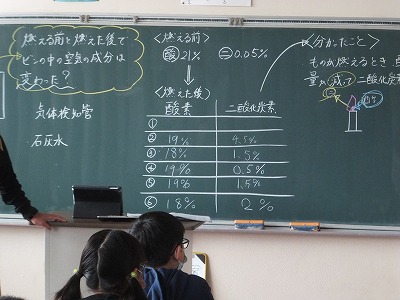 燃える前と燃えた後で
ビンの中の空気の成分は
変わった?
気体検知管
石灰水
<燃える前>
酸21% 二0.05%
<燃えた後>
酸素 二酸化炭素
①
② 19% 4.5%
③ 18% 1.5%
④ 19% 0.5%
⑤ 19% 1.5%
⑥ 18% 2%
<分かったこと>
ものが燃えるとき
量が減って二酸化炭素